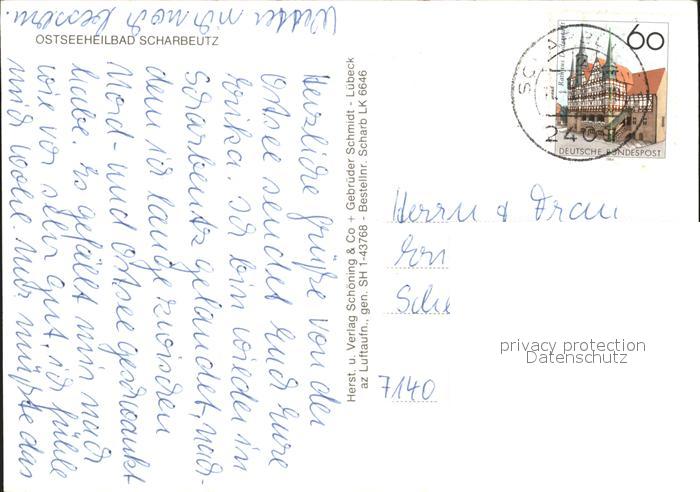 OSTSEEHEILBAD SCHARBEUTZ
Herzliche Grüße von der
Ostsee sendet Euch Eure
Erika. Ich bin wieder in
Scharbeutz gelandet, nach-
dem ich lange zwischen
Nord- und Ostsee geschwankt
habe. Es gefällt mir nach
wie vor sehr gut, ich fühle
mich wohl. Nur müßte das
Wetter sich noch bessern.
Herst. u. Verlag Schöning & Co + Gebrüder Schmidt - Lübeck
az Luftaufn., gen. SH 1-43768 - Bestellnr. Scharb LK 6646
60
DEUTSCHE BUNDESPOST
Herrn & Frau
7140
privacy protection
Datenschutz